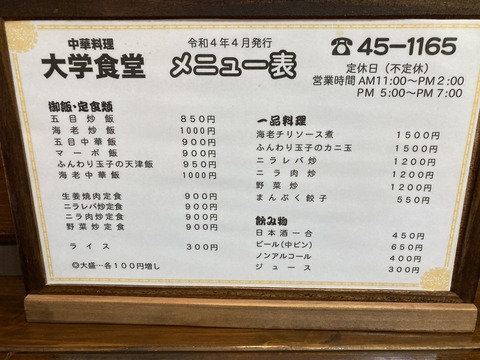 中華料理
大学食堂
令和4年4月発行
メニュー表
☎45-1165
定休日(不定休)
営業時間 AM11:00〜PM2:00
PM 5:00〜PM7:00
御飯・定食類
五目炒飯 850円
海老炒飯 1000円
五目中華飯 900円
マーボ飯 900円
ふんわり玉子の天津飯 950円
海老中華飯 1000円
生姜焼肉定食 900円
ニラレバ炒定食 900円
ニラ肉炒定食 900円
野菜炒定食 900円
ライス 300円
◎大盛…各100円増し
一品料理
海老チリソース煮 1500円
ふんわり玉子のカニ玉 1500円
ニラレバ炒 1200円
ニラ肉炒 1200円
野菜炒 1200円
まんぷく餃子 550円
飲み物
日本酒一合 450円
ビール(中ビン) 650円
ノンアルコール 400円
ジュース 300円